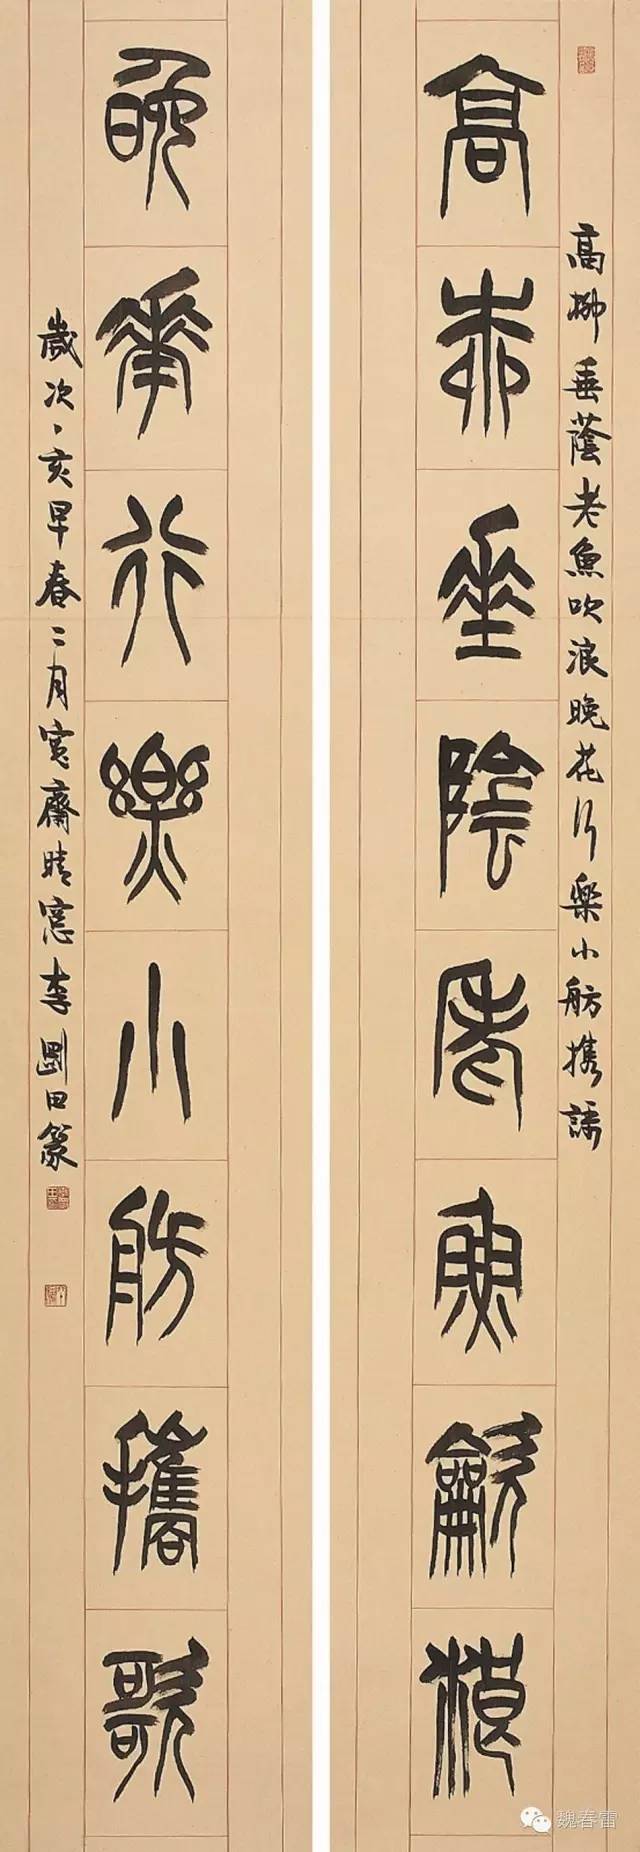 高柳垂蔭老魚吹浪晚花行樂小舫攜謌
高柳垂陰老魚龡浪
晚華行樂小舫攜歌
歲次亥早春二月齋晴窓李剛田篆
魏春雷